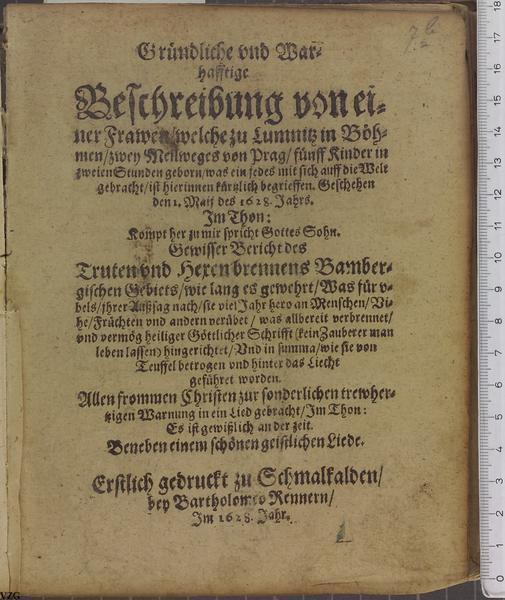 7.b
Gründliche vnd War-
hafftige
Beschreibung von ei-
ner Frawen/welche zu Lumnitz in Böh-
men/zwey Meilweges von Prag/fünff Kinder in
zweien Stunden geborn/was ein jedes mit sich auff die Welt
gebracht/ist hierinnen kürtzlich begrieffen. Geschehen
den 1. Maij des 1628. Jahrs.
Im Thon:
Kompt her zu mir spricht Gottes Sohn.
Gewisser Bericht des
Truten vnd Hexen brennens Bamber-
gischen Gebiets/wie lang es gewehrt/Was für v-
bels/ihrer Außsag nach/sie viel Jahr hero an Menschen/Vi-
he/Früchten vnd andern verübet/was allbereit verbrennet/
vnd vermög heiliger Göttlicher Schrifft (kein Zauberer man
leben lassen) hingerichtet/Vnd in summa/wie sie von
Teuffel betrogen vnd hinter das Liecht
geführet worden.
Allen frommen Christen zur sonderlichen trewher-
tzigen Warnung in ein Lied gebracht/Im Thon:
Es ist gewißlich an der zeit.
Beneben einem schönen geistlichen Liede.
Erstlich gedruckt zu Schmalkalden/
bey Bartholomeo Rennern/
Im 1628. Jahr.
1
VZG
0 1 2 3 4 5 6 7 8 9 10 11 12 13 14 15 16 17 18